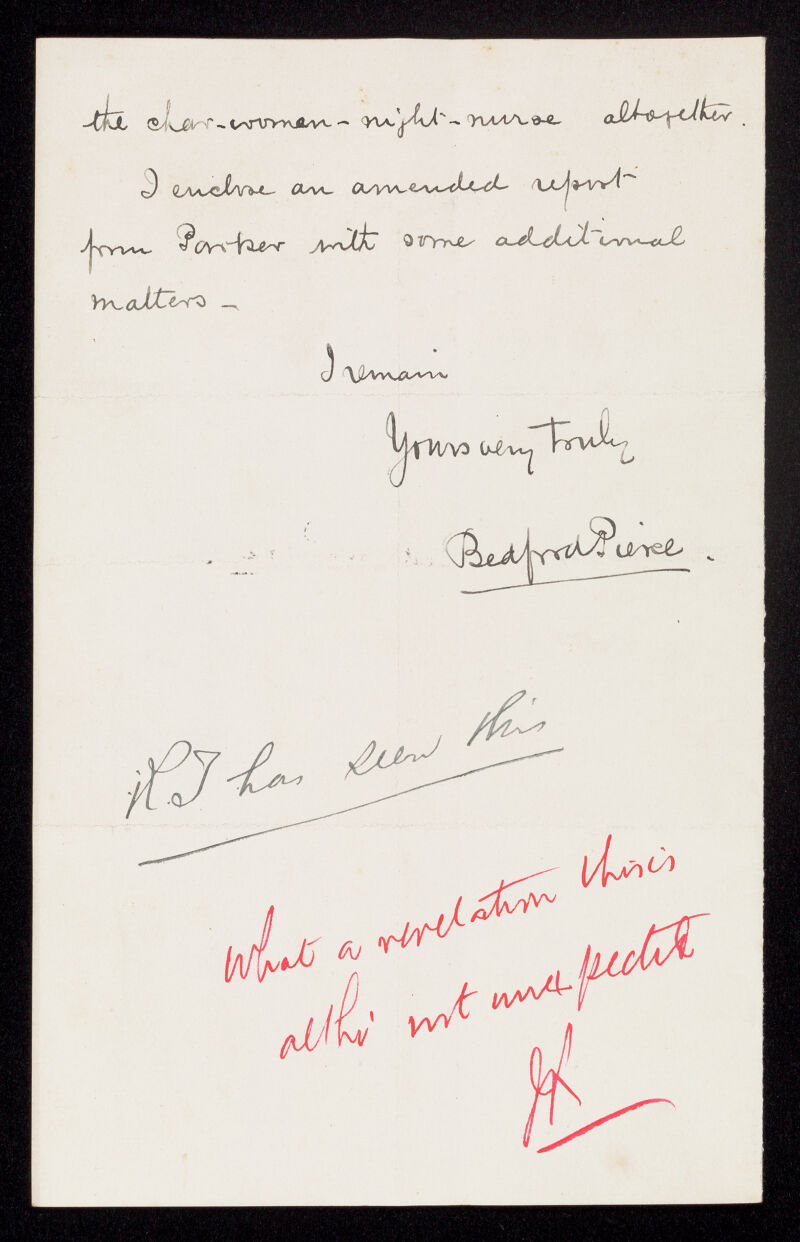 the char-woman-night-nurse altogether.
I enclose an amended report
from Parker with some additional
matters -
I remain
Yours very truly
Bedford Pierce.
H.T has seen this
What a revelation this is
altho' not unexpected